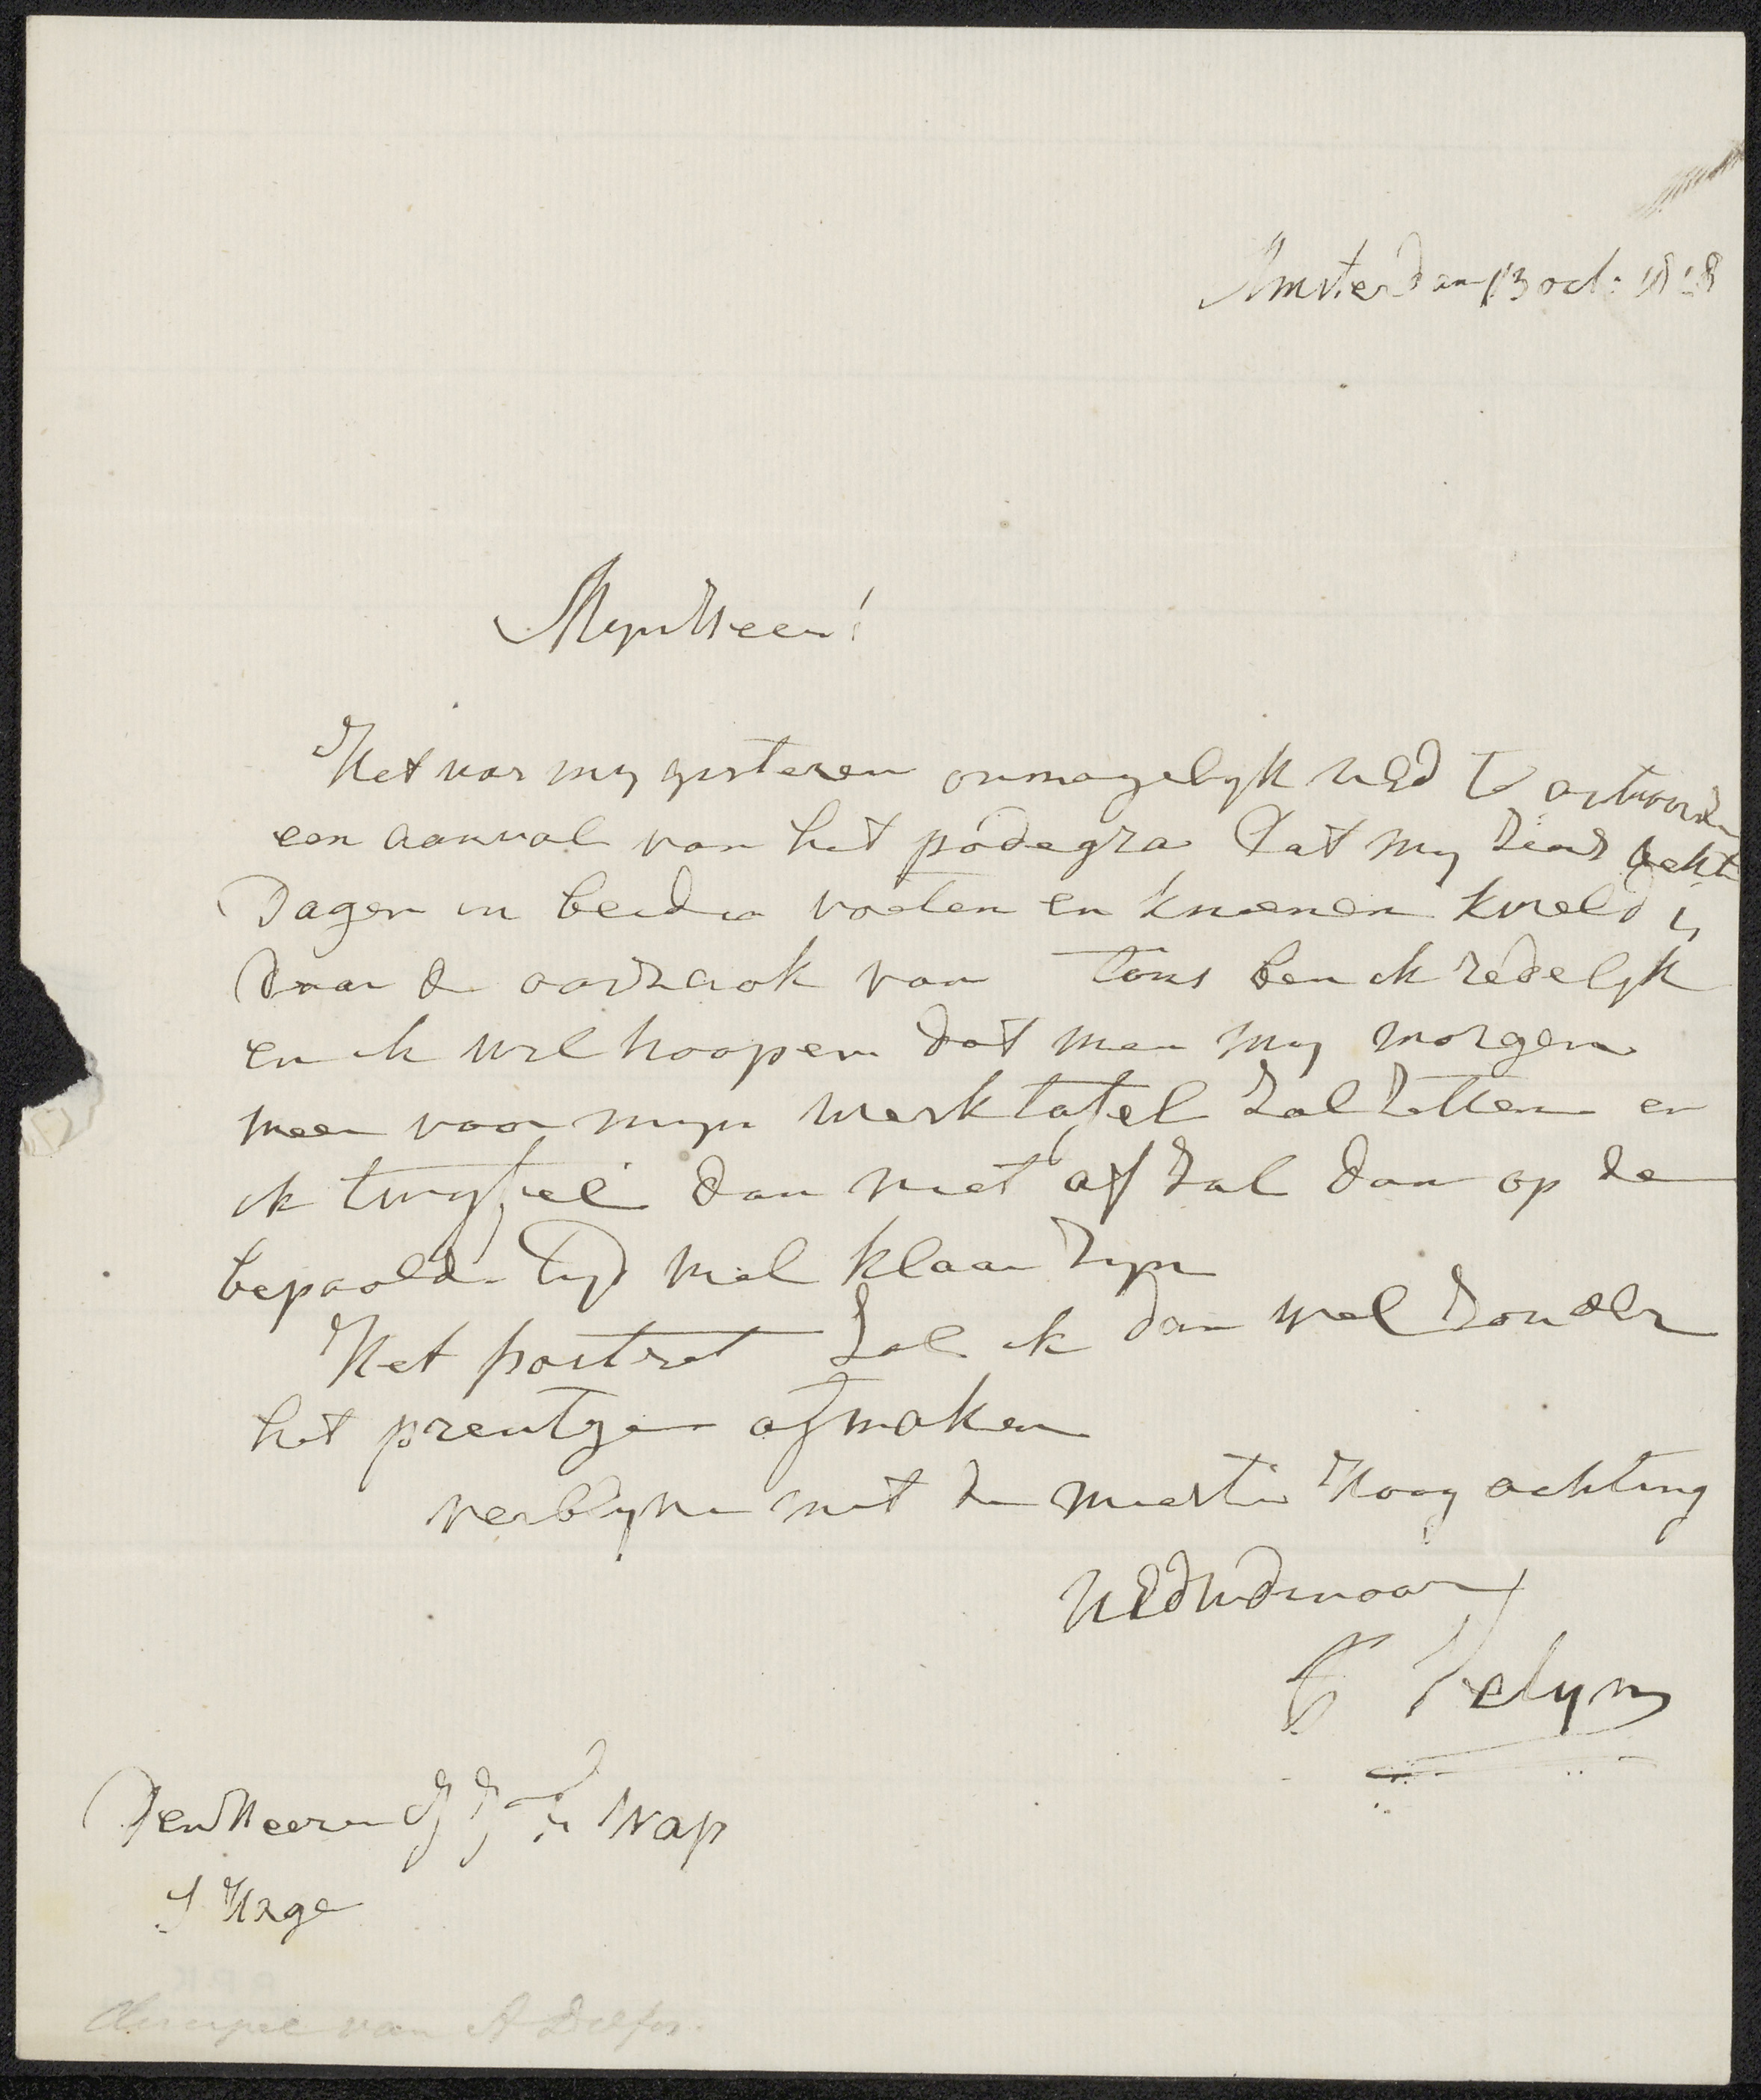 Amsterdam 13 oct: 1818
Mynheer!
Het was my gisteren onmogelyk UEd te antwoorden
een aanval van het podegra dat my sins acht
Dagen in beide voeten en knienen kweld is
daar de oorzaak van thans ben ik redelyk
en ik wil hoopen dat men my morgen
weer voor myn werktafel zal zetten en
ik twyfiel dan niet of zal dan op de
bepaalde tyd wel klaar zyn
Het portret zal ik dan wel zonder
het prentje afmaken
verblyve met de meeste Hoogachting
UEdUdienaar
Velyn
Den Heere Wap
S Hage
van A Delfos.